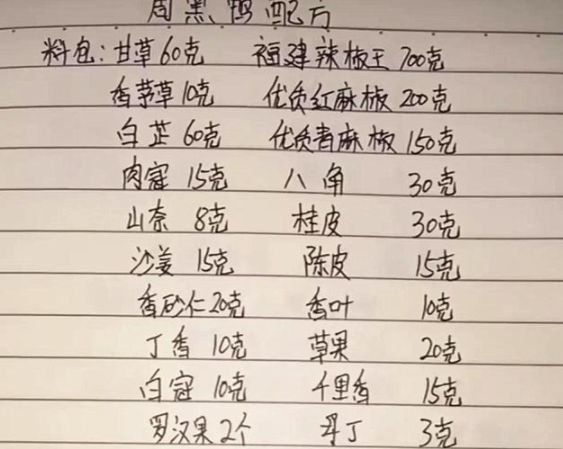 周黑鸭配方
料包:甘草60克 福建辣椒王700克
香茅草10克 优质红麻椒200克
白芷60克 优质青麻椒150克
肉寇15克 八角 30克
山奈 8克 桂皮 30克
沙姜 15克 陈皮 15克
香砂仁20克 香叶 10克
丁香 10克 草果 20克
白寇 10克 千里香 15克
罗汉果2个 丹丁 3克